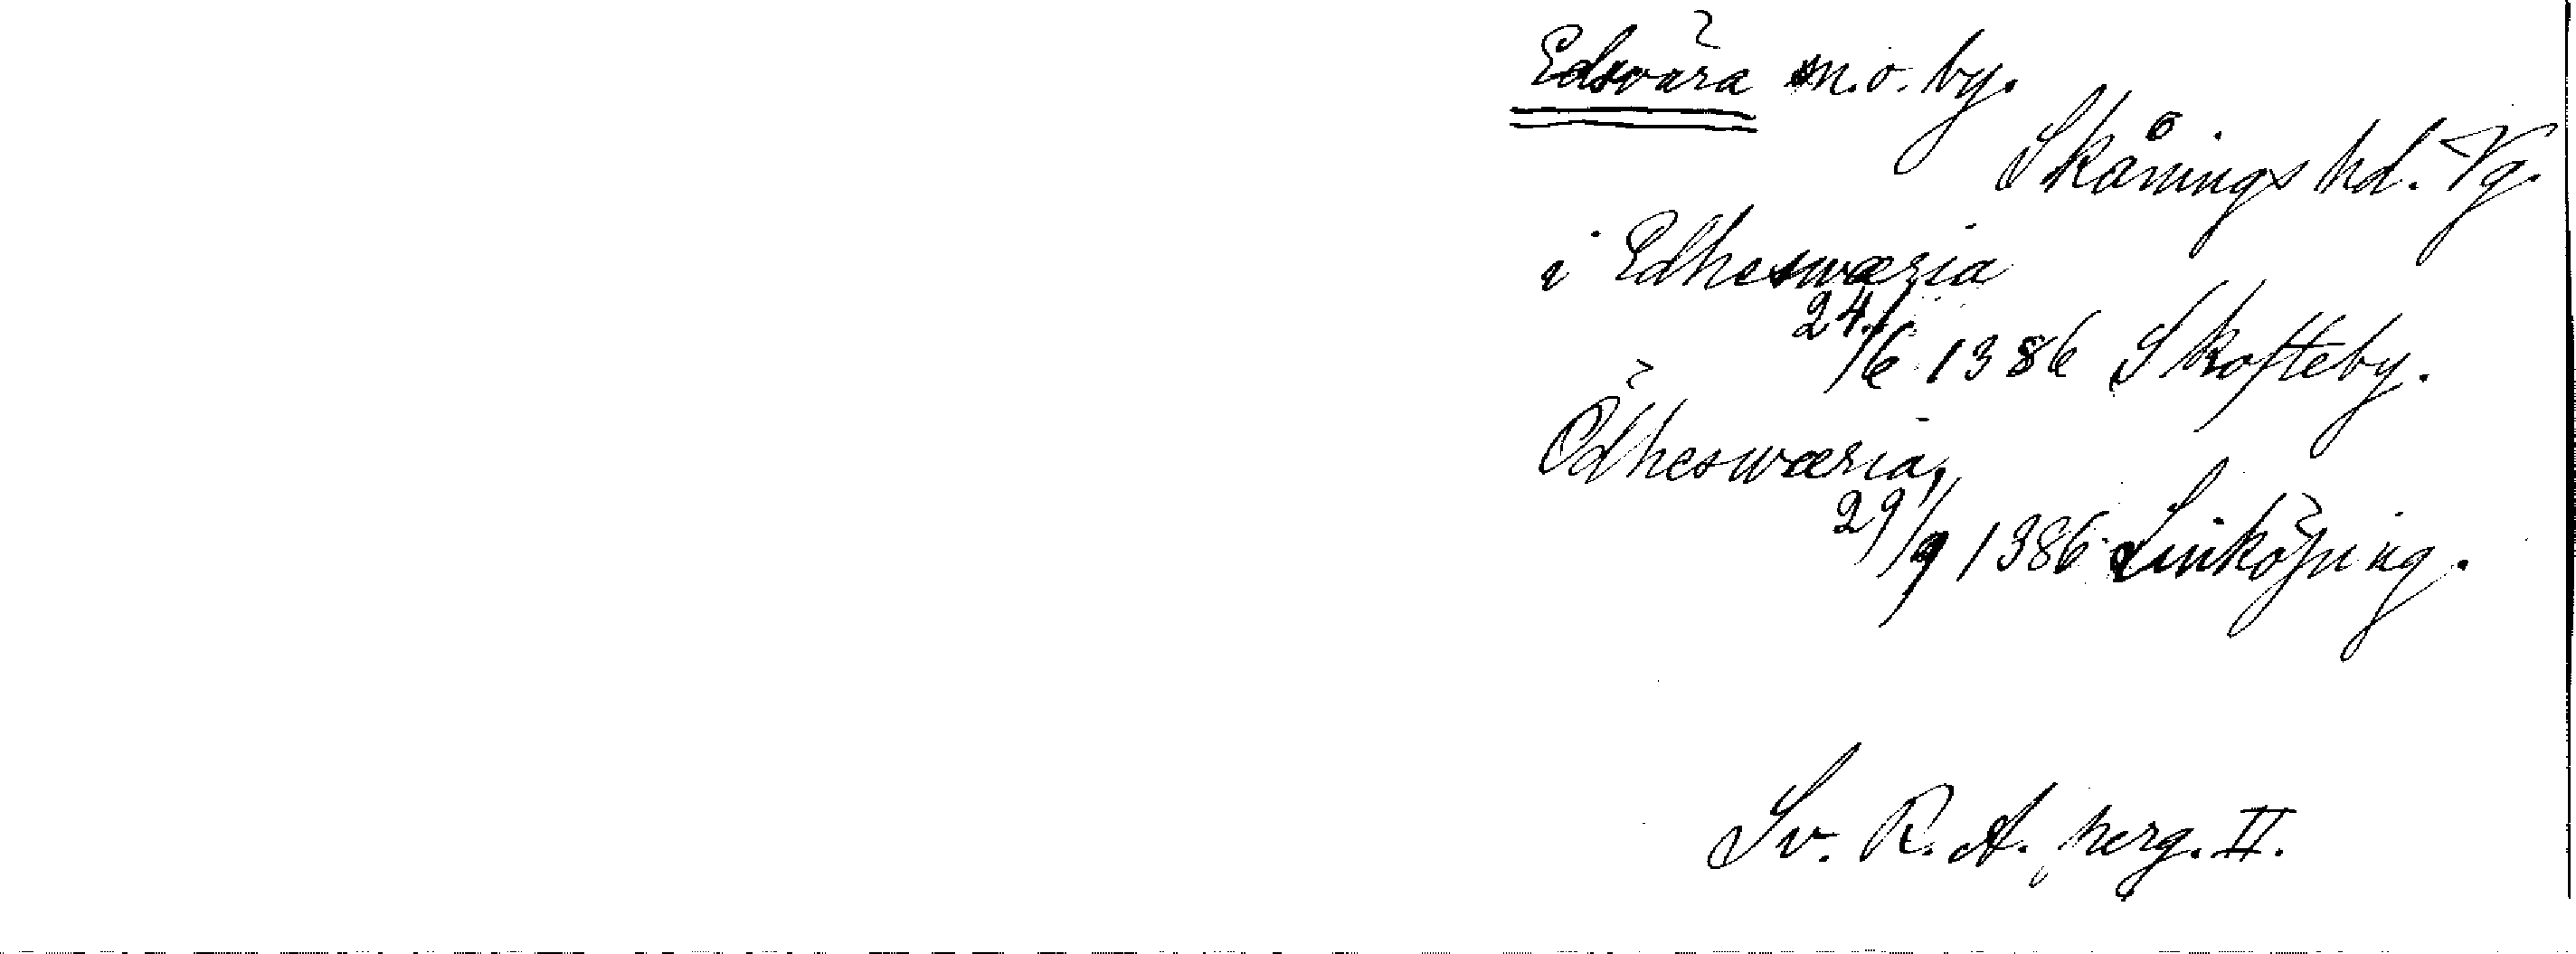 Edsvära sn. o. by.
Skånings hd. Vg.
i Edheswæria
24/6 1386 Skofteby.
Ödheswæria,
29/9 1386 Linköping.
Sv. R. A. perg. II.